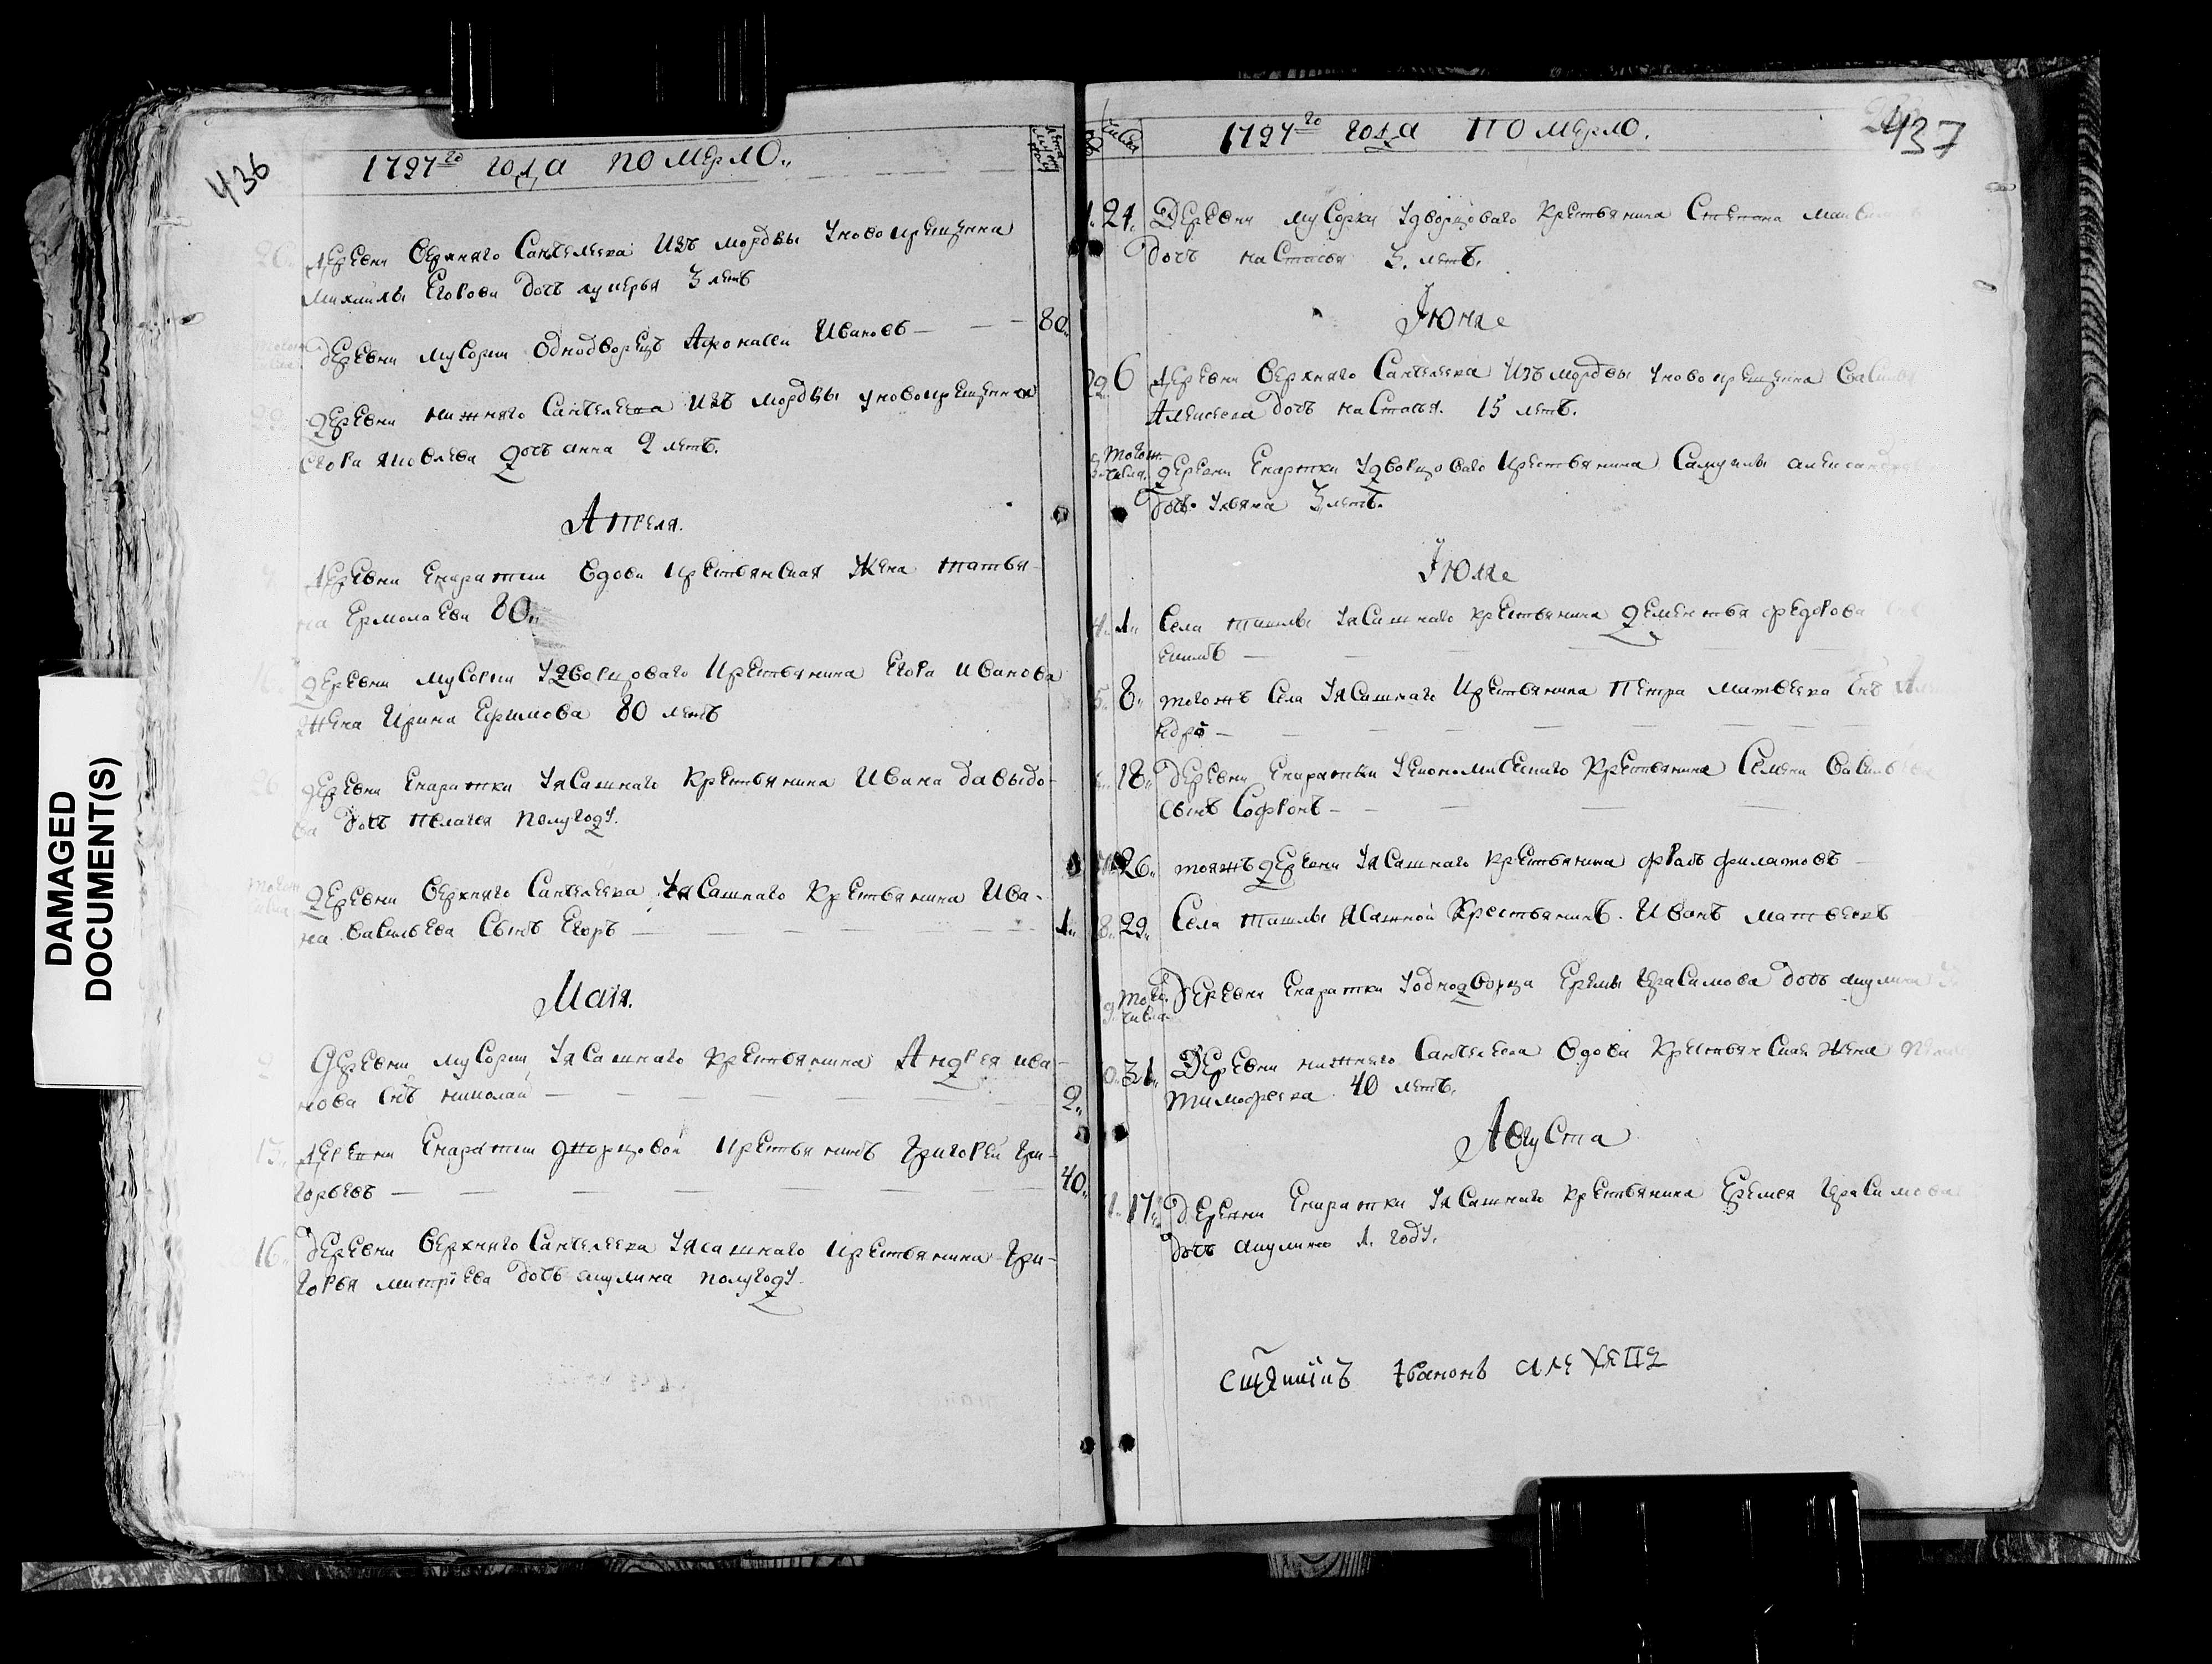 DAMAGED
DOCUMENT(S)
436
1797го года померло
26. деревни верхняго Санчелеева изъ мордвы у новокрещенна
михаилы Егорова дочь лукерья 3 летъ
деревни мусорки однодворецъ Афонасеи Ивановъ — 80.
29. деревни нижняго Санчелеева изъ мордвы у новокрещенна
Егора яковлева дочь анна 2 летъ.
Апреля.
деревни Екаратки вдова крестьянская жена татья-
на Ермолаева 80.
деревни мусорки у дворцоваго крестьянина Егора иванова
жена Ирина Ефимова 80 летъ
26. деревни Екаратки у ясашнаго крестьянина Ивана давыдо-
ва дочь пелагея полугоду.
тогож числа деревни верхняго Санчелеева у ясашнаго крестьянина Ива-
на васильева сынъ Егоръ — 1.
Маия.
2 деревни мусорки у ясашнаго крестьянина Андрея ива-
нова снъ николаи — 2.
15. деревни Екаратки дворцовои крестьянинъ григореи гри-
горьевъ — 40.
16. деревни верхняго Санчелеева у ясашнаго крестьянина гри-
горья митрїева дочь акулина полугоду.
437
числа
1797го года померло.
24. деревни мусорки у дворцоваго крестьянина Степана
дочь настасья 3. летъ.
Іюня
6 деревни верхняго Санчелеева изъ мордвы у новокрещенна василья
Алексеева дочь настасья. 15 летъ.
тогож числа. деревни Екаратки у дворцоваго крестьянина Самуилы александро
дочь ульяна 3 летъ.
Іюля
1. Села ташлы у ясашнаго крестьянина дементья федорова

8. тогожъ села у ясашнаго крестьянина Петра матвеева снъ
ндръ —
18. деревни Екаратки у економическаго крестьянина Семена васильева
сынъ Софронъ —
26. тояжъ деревни у ясашнаго крестьянина фролъ филатовъ —
8. 29. Села ташлы ясашной крестьянинъ. Иванъ матвеевъ
9. того числа деревни Екаратки у однодворца Еремы герасимова дочь акулина
31. деревни нижняго Санчелеева вдова крестьянская жена
тимофеева 40 летъ.
Августа
17. деревни Екаратки у ясашнаго крестьянина Еремея герасимова
дочь акулина 1. году.
сщенникъ Іваннъ алеѯѣевъ